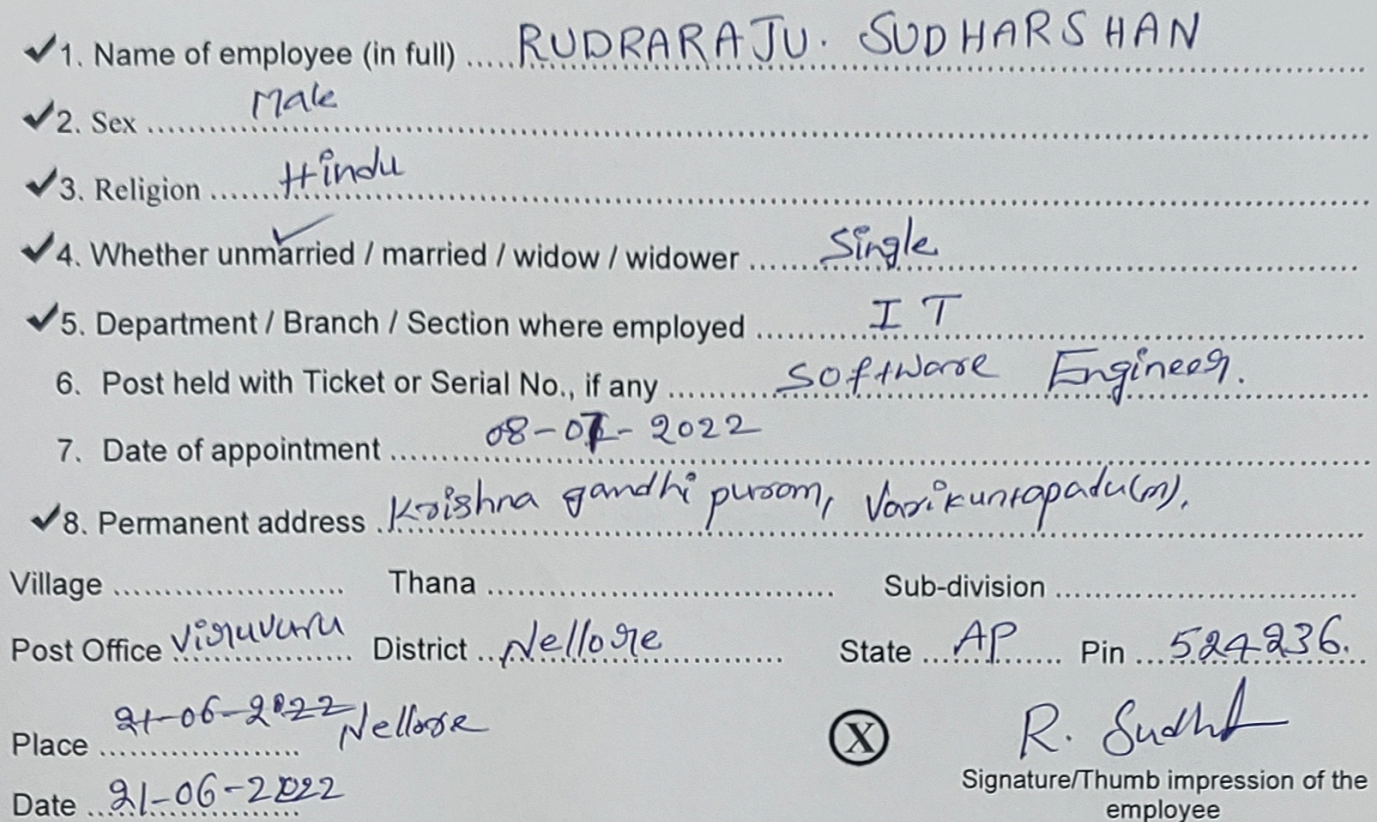 ✔1. Name of employee (in full) ..... RUDRARAJU. SUDHARSHAN
✔2. Sex ..... Male
✔3. Religion ..... Hindu
✔4. Whether unmarried / married / widow / widower ..... Single
✔5. Department / Branch / Section where employed ..... IT
6. Post held with Ticket or Serial No., if any ..... Software Engineer.
7. Date of appointment ..... 08-07-2022
✔8. Permanent address ..... Krishna gandhi puram, Varikuntapadu(m),
Village ..... Thana ..... Sub-division .....
Post Office Viruvuru District ..... Nellore State ..... AP Pin ..... 524236.
Place ..... 21-06-2022 Nellore
Date ..... 21-06-2022
X R. Sudh
Signature/Thumb impression of the
employee